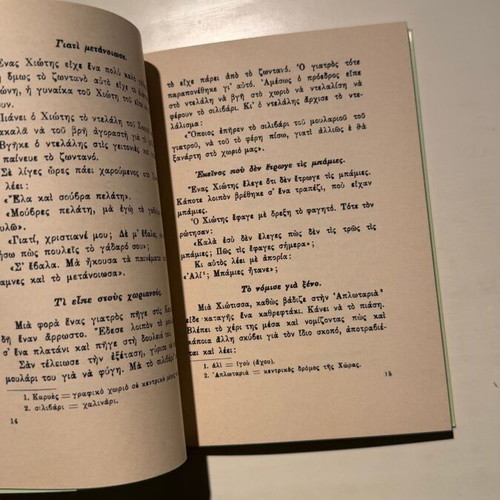 Γιατὶ μετάνοιωσε.
Ἕνας Χιώτης εἶχε ἕνα πολὺ καλὸ
ὅμως τὸ ζωντανὸ αὐτὸ εἶχε
ἡ γυναίκα τοῦ Χιώτη τοῦ εἶπε νὰ
Πιάνει ὁ Χιώτης τὸ ντελάλη τοῦ
καλᾶ νὰ τοῦ βρῆ ἀγοραστὴ γιὰ τὸ
Βγῆκε ὁ ντελάλης στὶς γειτονιὲς κα
παίνευε τὸ ζωντανό.
Σὲ λίγες ὧρες πάει χαρούμενος στὸ
λέει:
«Ἔλα καὶ σοῦβρα πελάτη».
«Μοῦβρες πελάτη, μὰ ἐγὼ τὸ
υλῶ».
«Γιατί, χριστιανέ μου; Δὲ μ' ἔβαλες
ήσω πὼς πουλεῖς τὸ γάδαρό σου;»
«Σ' ἔβαλα. Μὰ ἤκουσα τὰ παινέματα
αμνες καὶ τὸ μετάνοιωσα».
Τί εἶπε στοὺς χωριανούς.
Μιὰ φορὰ ἕνας γιατρὸς πῆγε στὶς
δῆ ἕναν ἄρρωστο. Ἔδεσε λοιπὸν τὸ μου
σ' ἕνα πλατάνι καὶ πῆγε στὴ δουλειά
Σὰν τέλειωσε τὴν ἐξέταση, γύρισε
μουλάρι του γιὰ νὰ φύγη. Μὰ τὸ σιλιβάρι
1. Καρυὲς = γραφικὸ χωριὸ σὲ κεντρικὸ μέρος
2. σιλιβάρι = χαλινάρι.
14
τὸ εἶχε πάρει ἀπὸ τὸ ζωντανό. Ὁ γιατρὸς τότε
παραπονέθηκε γι' αὐτό. Ἀμέσως ὁ πρόεδρος εἶπε
στὸ ντελάλη νὰ βγῆ στὸ χωριὸ νὰ ντελαλίση νὰ
φέρουν τὸ σιλιβάρι. Κι' ὁ ντελάλης ἄρχισε τὸ ντε-
λάλισμα:
«Ὅποιος ἐπῆρεν τὸ σιλιβάρι τοῦ μουλαριοῦ τοῦ
γιατροῦ, νὰ τοῦ τὸ φέρη πίσω, γιατὶ ἀλλιῶς ἒ θὰ
ξανάρτη στὸ χωριό μας».
Ἐκεῖνος ποὺ δὲν ἔτρωγε τὶς μπάμιες.
Ἕνας Χιώτης ἔλεγε ὅτι δὲν ἔτρωγε τὶς μπάμιες.
Κάποτε λοιπὸν βρέθηκε σ' ἕνα τραπέζι, ποὺ εἶχαν
μπάμιες.
Ὁ Χιώτης ἔφαγε μὲ ὄρεξη τὸ φαγητό. Τότε τὸν
ρώτησαν:
«Καλὰ ἐσὺ δὲν ἔλεγες πὼς δὲν τὶς τρῶς τὶς
μπάμιες; Πῶς τὶς ἔφαγες σήμερα;»
Κι αὐτὸς λέει μὲ ἀπορία:
«Ἀλί¹; Μπάμιες ἤτανε»;
Τὸ νόμισε γιὰ ξένο.
Μιὰ Χιώτισσα, καθὼς βάδιζε στὴν Ἀπλωταριὰ²
εἶδε καταγῆς ἕνα καθρεφτάκι. Κάνει νὰ τὸ πιάση.
Βλέπει τὸ χέρι της μέσα καὶ νομίζοντας πὼς καὶ
κάποια ἄλλη σκύβει γιὰ τὸν ἴδιο σκοπό, ἀποτραβιέ-
ται καὶ λέει:
1. Ἀλὶ = (γοῦ (ἄχου).
2. Ἀπλωταριὰ = κεντρικὸς δρόμος τῆς Χώρας.
15